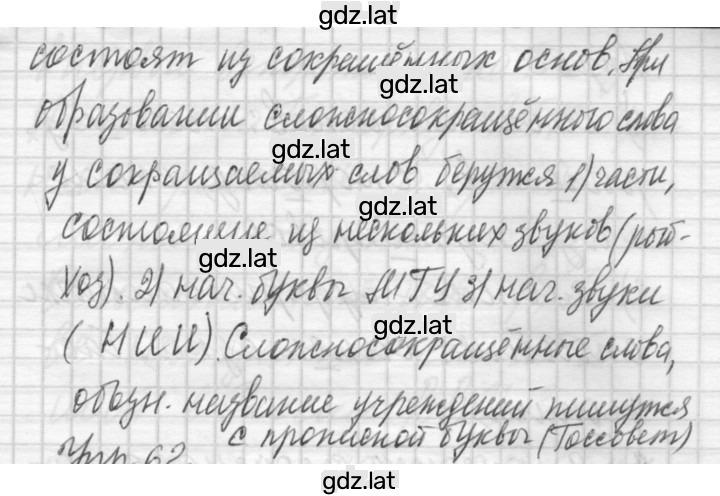 gdz.lat
состоят из сокращённых основ. При
gdz.lat
образовании сложносокращённого слова
gdz.lat
у сокращаемых слов берутся 1) части,
gdz.lat
состоящие из нескольких звуков (рыб-
gdz.lat
хоз). 2) нач. буквы МГУ 3) нач. звуки
gdz.lat
(НИИ). Сложносокращённые слова,
gdz.lat
обозн. название учреждений пишутся
с прописной буквы (Моссовет)
Упр. 62.
gdz.lat